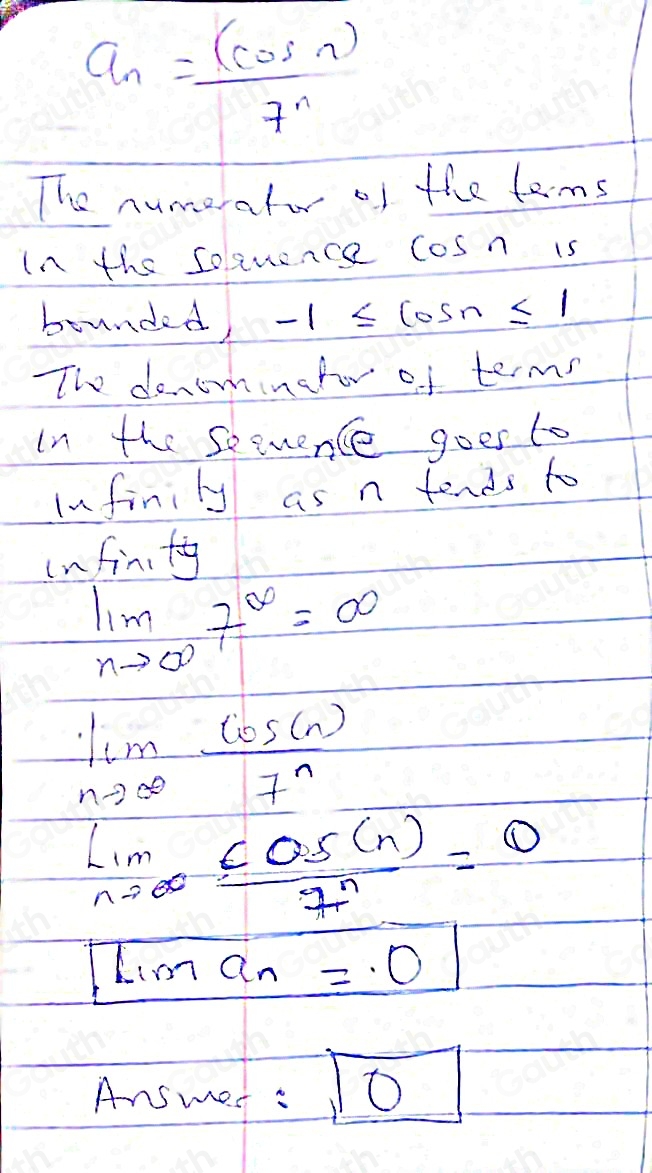 aₙ = (cos n) / 7ⁿ
The numerator of the terms
in the sequence cos n is
bounded, -1 ≤ cosn ≤ 1
The denominator of terms
in the sequence goes to
infinity as n tends to
infinity
lim n→∞ 7^∞ = ∞
lim n→∞ cos(n) / 7ⁿ
Lim n→∞ cos(n) / 7ⁿ = 0
Lim aₙ = 0
Answer: 0